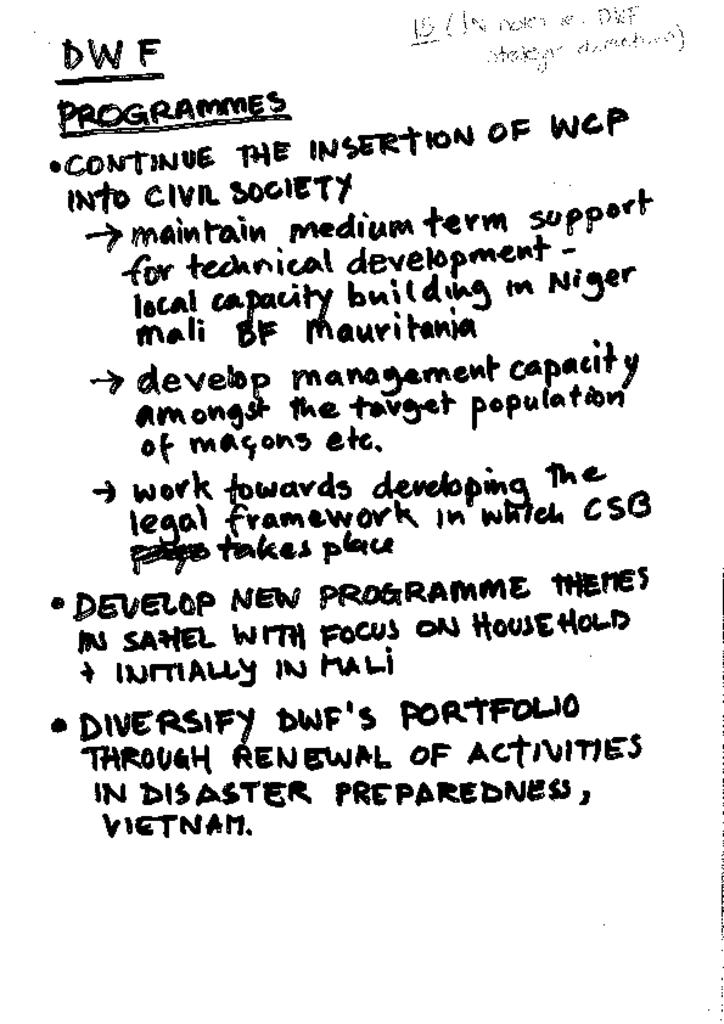 15 (IN notes DWF
DWF
strategic directions)
PROGRAMMES
• CONTINUE THE INSERTION OF WCP
INTO CIVIL SOCIETY
→ maintain medium term support
for technical development -
local capacity building in Niger
mali BF Mauritania
→ develop management capacity
amongst the target population
of maçons etc.
→ work towards developing the
legal framework in which CSB
takes place
• DEVELOP NEW PROGRAMME THEMES
IN SAHEL WITH FOCUS ON HOUSEHOLD
+ INITIALLY IN MALI
• DIVERSIFY DWF'S PORTFOLIO
THROUGH RENEWAL OF ACTIVITIES
IN DISASTER PREPAREDNESS,
VIETNAM.